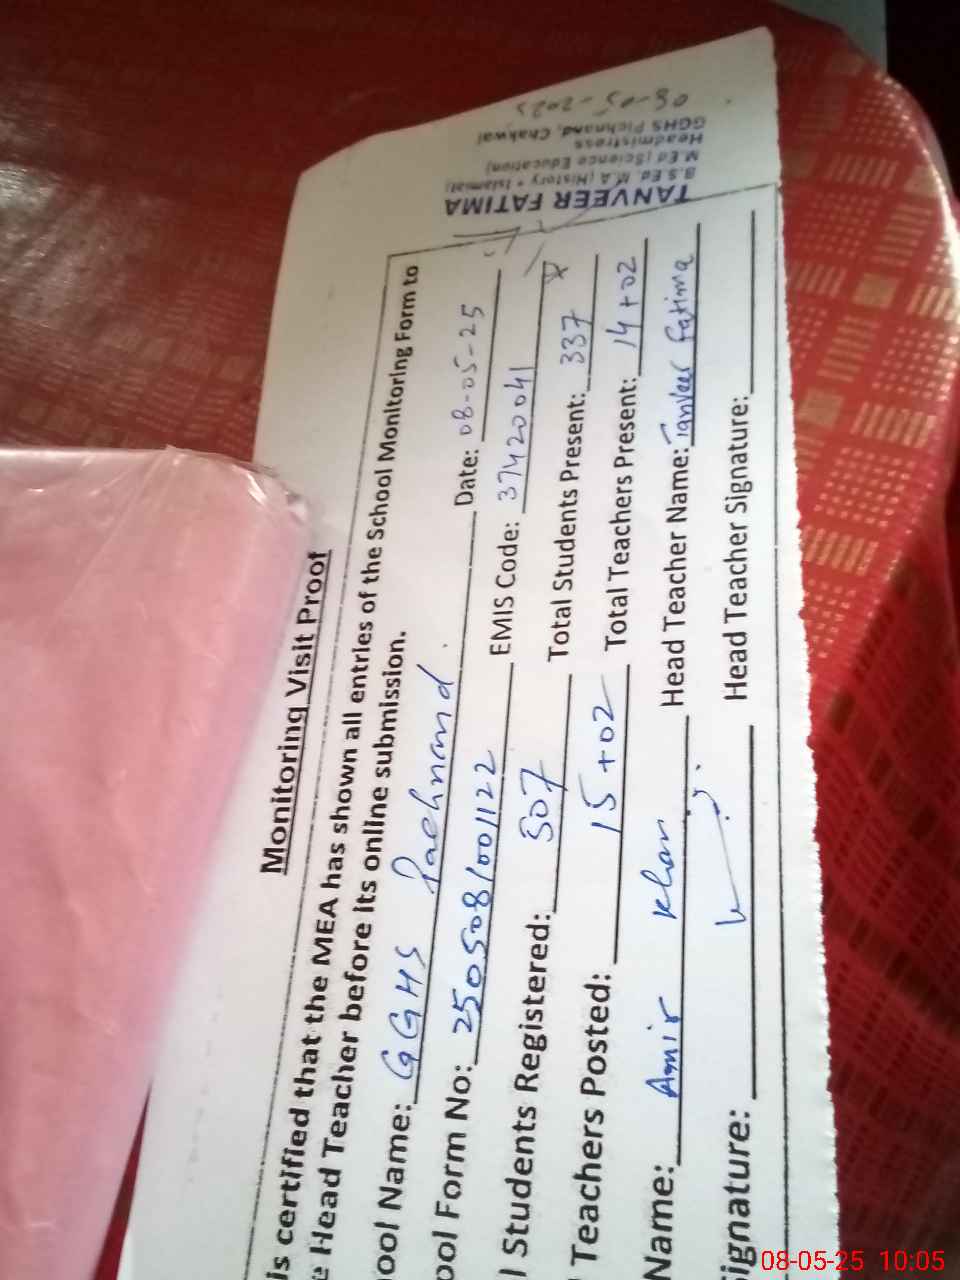 Monitoring Visit Proof
is certified that the MEA has shown all entries of the School Monitoring Form to
e Head Teacher before its online submission.
ool Name: GGHS Pachnand. Date: 08-05-25
ool Form No: 2505081001122 EMIS Code: 37420041
l Students Registered: 507 Total Students Present: 337
Teachers Posted: 15+02 Total Teachers Present: 14+02
Name: Amir Khan Head Teacher Name: Tanveer Fatima
ignature: Head Teacher Signature:
TANVEER FATIMA
B.S.Ed, M.A (History + Islamiat)
M.Ed (Science Education)
Headmistress
GGHS Pichnand, Chakwal
08-05-2025
08-05-25 10:05